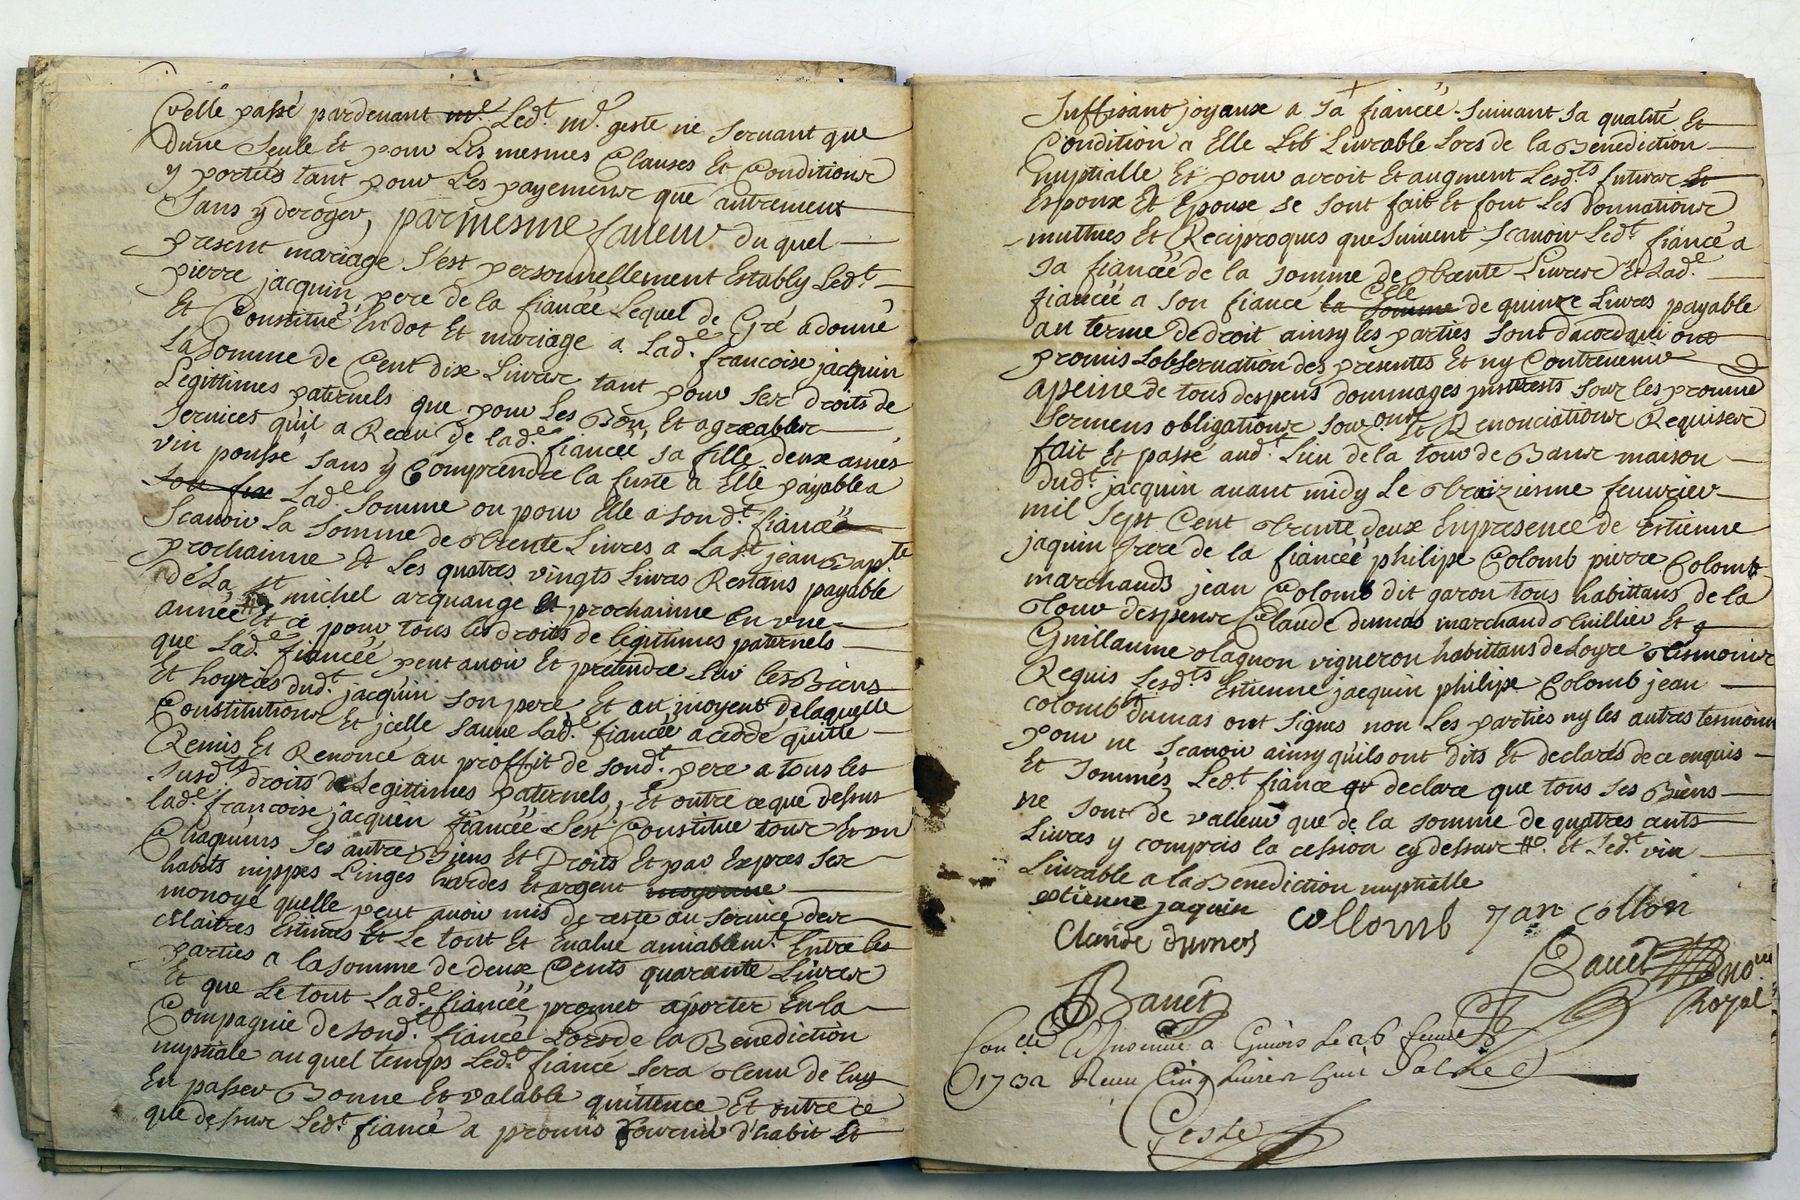 Celle passé pardevant Led.t m.e geste ne servant que
Dune seule Et pour Les mesmes Clauses Et Conditions
y portées tant pour Les payements que autrement
Sans y deroger, par mesme faveur du quel
present mariage S'est personnellement Estably Led.t
pierre jacquin pere de la fiancée Lequel de Gré a donné
Et Constitué En dot Et mariage a Lad.e francoise jacquin
La somme de Cent dix Livres tant pour ses droits de
Legittimes paternels que pour Les Bon Et agreables
services qu'il a Receu de lad.e fiancée sa fille deux asnés
vin poussé sans y Comprendre la fuste a Elle payable a
Lad.e somme ou pour Elle a sond.t fiancé
Scavoir La somme de trente Livres a La s.t jean Bap.te
prochainne Et Les quatres vingts Livres Restans payable
De La s.t michel arquange prochainne En une
année Et ce pour tous les droits de legittimes paternels
que Lad.e fiancée peut avoir Et pretendre sur les Biens
Et hoyries dud.t jacquin son pere Et au moyent delaquelle
Constitution Et jcelle sauve Lad.e fiancée a cedde quitte
Remis Et Renoncé au proffit de sond.t pere a tous les
susd.ts droits de Legittimes paternels, Et outre ce que dessus
lad.e francoise jacquin fiancée s'est Constitue tous Et un
Chaquuns ses autre Biens Et Droits Et par Expres ses
habits nippes Linges hardes Et argent monoyé
monoyé quelle peut avoir mis de reste au service des
Maitres Estimés Et Le tout Et Evalué amiablem.t Entre les
parties a la somme de deux Cents quarante Livres
Et que Le tout Lad.e fiancée promet aporter En la
Compagnie de sond.t fiancé Lors de la Benediction
nuptiale au quel temps Led.t fiancé sera tenu de luy
En passer Bonne Et valable quittence Et outre ce
que dessus Led.t fiancé a promis fournir d'habit Et
Suffisant joyaux a sa fiancée suivant sa qualité Et
Condition a Elle Livrable Lors de la Benediction
nuptialle Et pour acroit Et augment Lesd.ts futurs
Espoux Et Epouse se sont fait Et font Les donnations
muthues Et Reciproques que suivent Scavoir Led.t fiancé a
sa fiancée de la somme de trente Livres Et Lad.e
fiancée a son fiancé la somme Celle de quinze Livres payable
au terme de droit ainsy les parties sont dacord qui ont
promis Lobservation des presentes Et ny Contrevenir
apeine de tous despens dommages jnsterests sour les promne
sermens obligations Et Renonciations Requises
fait Et passé aud.t Lieu de la tour de Bans maison
Dud.t jacquin avant midy Le treiziesme feuvrier
mil sept Cent trente deux En presence de Estienne
jaquin frere de la fiancée philipe Colomb pierre Colomb
marchands jean Colomb dit garon tous habittans de la
tour despeur Claude dumas marchand thuillier Et
Guillaume tagnon vigneron habittans de Loyre tesmoins
Requis Lesd.ts Estienne jacquin philipe Colomb jean
colomb Et dumas ont signes non Les parties ny les autres tesmoins
pour ne Scavoir ainsy quils ont dits Et declarés de ce enquis
Et sommés Led.t fiancé declare que tous ses Biens
ne sont de valleur que de la somme de quattres cents
Livres y compris la cession cy dessus Et Led.t vin
Livrable a la Benediction nuptialle
estienne jaquin collomb jan collon
Claude dumas
Bauet Bauet no.re
Royal
Con.lle Et Insinué a Givors Le 26 feuvrier
1732 Receu Cinq Livres huit sols
Geste